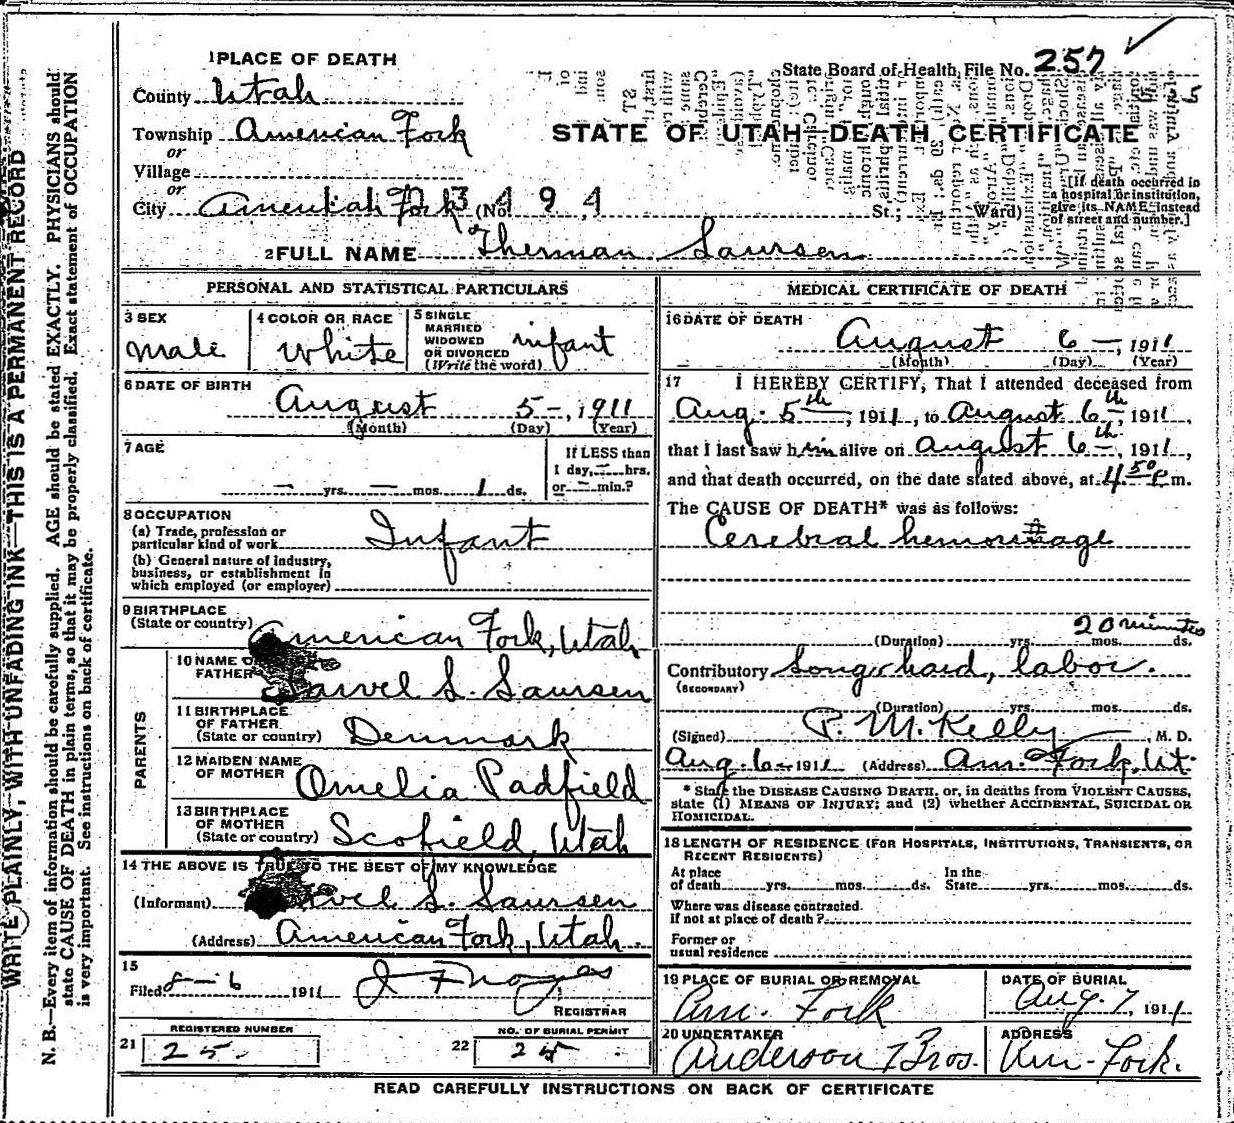 WRITE PLAINLY, WITH UNFADING INK—THIS IS A PERMANENT RECORD
N. B.—Every item of information should be carefully supplied. AGE should be stated EXACTLY. PHYSICIANS should
state CAUSE OF DEATH in plain terms, so that it may be properly classified. Exact statement of OCCUPATION
is very important. See instructions on back of certificate.
1 PLACE OF DEATH
State Board of Health, File No. 257
County Utah
Township American Fork
or
Village
or
STATE OF UTAH—DEATH CERTIFICATE
City American Fork (No. St.; Ward)
3494
[If death occurred in
a hospital or institution,
give its NAME instead
of street and number.]
2 FULL NAME Therman Laursen
PERSONAL AND STATISTICAL PARTICULARS
3 SEX
male
4 COLOR OR RACE
White
5 SINGLE
MARRIED
WIDOWED
OR DIVORCED
(Write the word)
infant
6 DATE OF BIRTH
August 5-, 1911
(Month) (Day) (Year)
7 AGE
— yrs. — mos. 1 ds.
If LESS than
1 day, — hrs.
or — min.?
8 OCCUPATION
(a) Trade, profession or
particular kind of work
Infant
(b) General nature of industry,
business, or establishment in
which employed (or employer)
9 BIRTHPLACE
(State or country)
American Fork, Utah
PARENTS
10 NAME OF
FATHER
L. Laursen
11 BIRTHPLACE
OF FATHER
(State or country)
Denmark
12 MAIDEN NAME
OF MOTHER
Omelia Padfield
13 BIRTHPLACE
OF MOTHER
(State or country)
Scofield, Utah
14 THE ABOVE IS TRUE TO THE BEST OF MY KNOWLEDGE
(Informant) L. Laursen
(Address) American Fork, Utah.
15
Filed 8-6 1911
REGISTRAR
REGISTERED NUMBER
21 25.
NO. OF BURIAL PERMIT
22 25
MEDICAL CERTIFICATE OF DEATH
16 DATE OF DEATH
August 6-, 1911
(Month) (Day) (Year)
17 I HEREBY CERTIFY, That I attended deceased from
Aug. 5th, 1911, to August 6th, 1911,
that I last saw him alive on August 6th, 1911,
and that death occurred, on the date stated above, at 4.50 P m.
The CAUSE OF DEATH* was as follows:
Cerebral hemorrhage
20 minutes
(Duration) yrs. mos. ds.
Contributory Long, hard, labor.
(SECONDARY)
(Duration) yrs. mos. ds.
(Signed) P. M. Kelly, M. D.
Aug. 6- 1911 (Address) Am. Fork, Ut.
* State the DISEASE CAUSING DEATH, or, in deaths from VIOLENT CAUSES,
state (1) MEANS OF INJURY; and (2) whether ACCIDENTAL, SUICIDAL OR
HOMICIDAL.
18 LENGTH OF RESIDENCE (FOR HOSPITALS, INSTITUTIONS, TRANSIENTS, OR
RECENT RESIDENTS)
At place
of death yrs. mos. ds.
In the
State yrs. mos. ds.
Where was disease contracted
If not at place of death?
Former or
usual residence
19 PLACE OF BURIAL OR REMOVAL
Am. Fork
DATE OF BURIAL
Aug. 7, 1911
20 UNDERTAKER
Anderson & Bros.
ADDRESS
Am-Fork.
READ CAREFULLY INSTRUCTIONS ON BACK OF CERTIFICATE